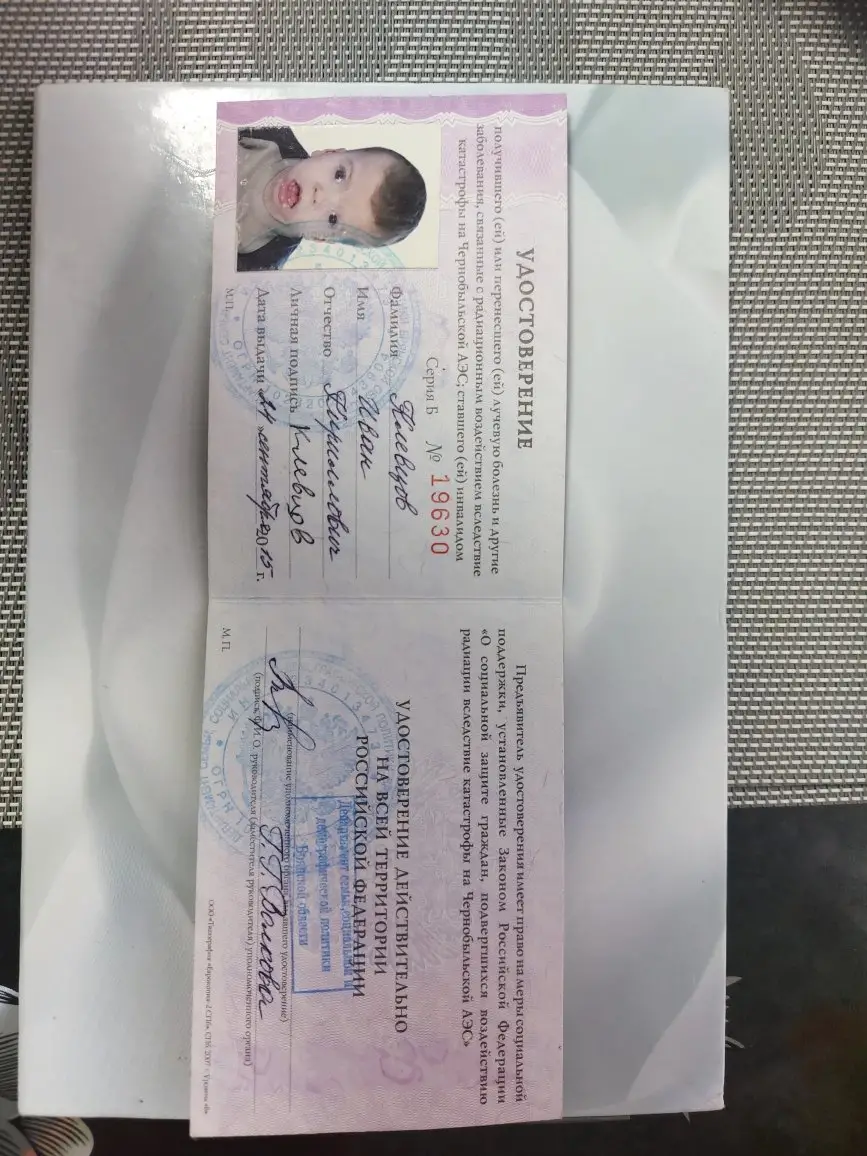 УДОСТОВЕРЕНИЕ
получившего (ей) или перенесшего (ей) лучевую болезнь и другие
заболевания, связанные с радиационным воздействием вследствие
катастрофы на Чернобыльской АЭС; ставшего (ей) инвалидом
Серия Б № 19630
Фамилия Клевцов
Имя Иван
Отчество Кириллович
Личная подпись Клевцов
Дата выдачи сентября 2015 г.
М.П.
Предъявитель удостоверения имеет право на меры социальной
поддержки, установленные Законом Российской Федерации
«О социальной защите граждан, подвергшихся воздействию
радиации вследствие катастрофы на Чернобыльской АЭС»
УДОСТОВЕРЕНИЕ ДЕЙСТВИТЕЛЬНО
НА ВСЕЙ ТЕРРИТОРИИ
РОССИЙСКОЙ ФЕДЕРАЦИИ
Департамент семьи, социальной и
демографической политики
Брянской области
(наименование уполномоченного органа, выдавшего удостоверение)
Г.Г. Волкова
(подпись, Ф.И.О. руководителя (заместителя руководителя) уполномоченного органа)
М.П.